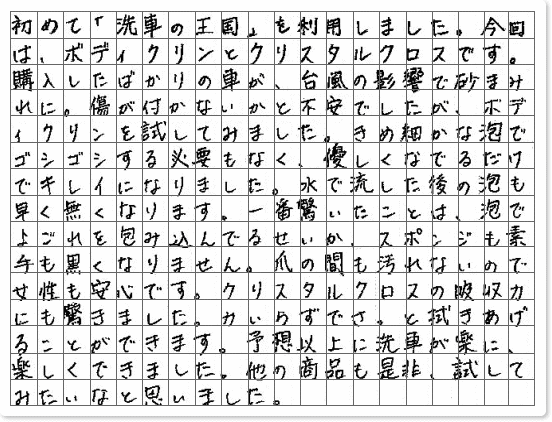 初めて「洗車の王国」を利用しました。今回
は、ボディクリンとクリスタルクロスです。
購入したばかりの車が、台風の影響で砂まみ
れに。傷が付かないかと不安でしたが、ボデ
ィクリンを試してみました。きめ細かな泡で
ゴシゴシする必要もなく、優しくなでるだけ
でキレイになりました。水で流した後の泡も
早く無くなります。一番驚いたことは、泡で
よごれを包み込んでるせいか、スポンジも素
手も黒くなりません。爪の間も汚れないので
女性も安心です。クリスタルクロスの吸収力
にも驚きました。力いらずでさっと拭きあげ
ることができます。予想以上に洗車が楽に、
楽しくできました。他の商品も是非、試して
みたいなと思いました。